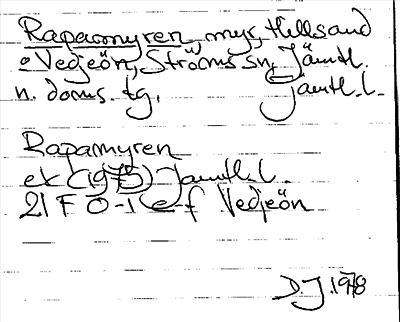 Rapamyren, myr, Hellsand
o Vedjeön, Ströms sn, Jämtl.
n. doms. tg, jämtl. l.
Rapamyren
ek (1975) Jämtl. l.
21 F 0-1 e-f Vedjeön
D.J 1978